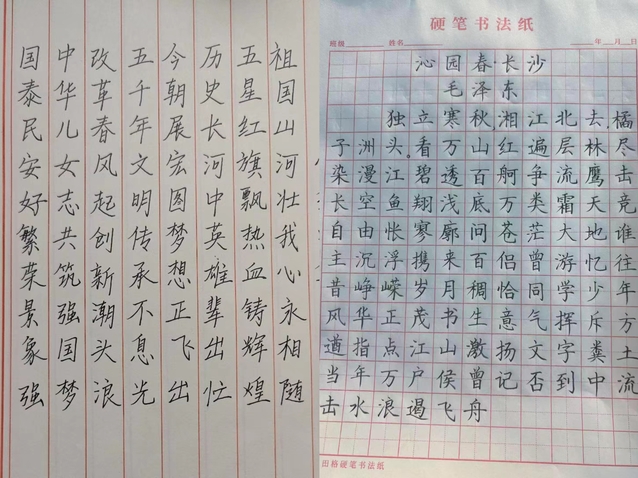 祖国山河壮我心永相随
五星红旗飘热血铸辉煌
历史长河中英雄辈出忙
今朝展宏图梦想正飞出
五千年文明传承不息光
改革春风起创新潮头浪
中华儿女志共筑强国梦
国泰民安好繁荣景象强
硬笔书法纸
班级 姓名 年 月 日
沁园春·长沙
毛泽东
独立寒秋,湘江北去,橘
子洲头。看万山红遍层林尽
染漫江碧透百舸争流鹰击
长空鱼翔浅底万类霜天竞
自由怅寥廓问苍茫大地谁
主沉浮携来百侣曾游忆往
昔峥嵘岁月稠恰同学少年
风华正茂书生意气挥斥方
道指点江山激扬文字粪土
当年万户侯曾记否到中流
击水浪遏飞舟
田格硬笔书法纸